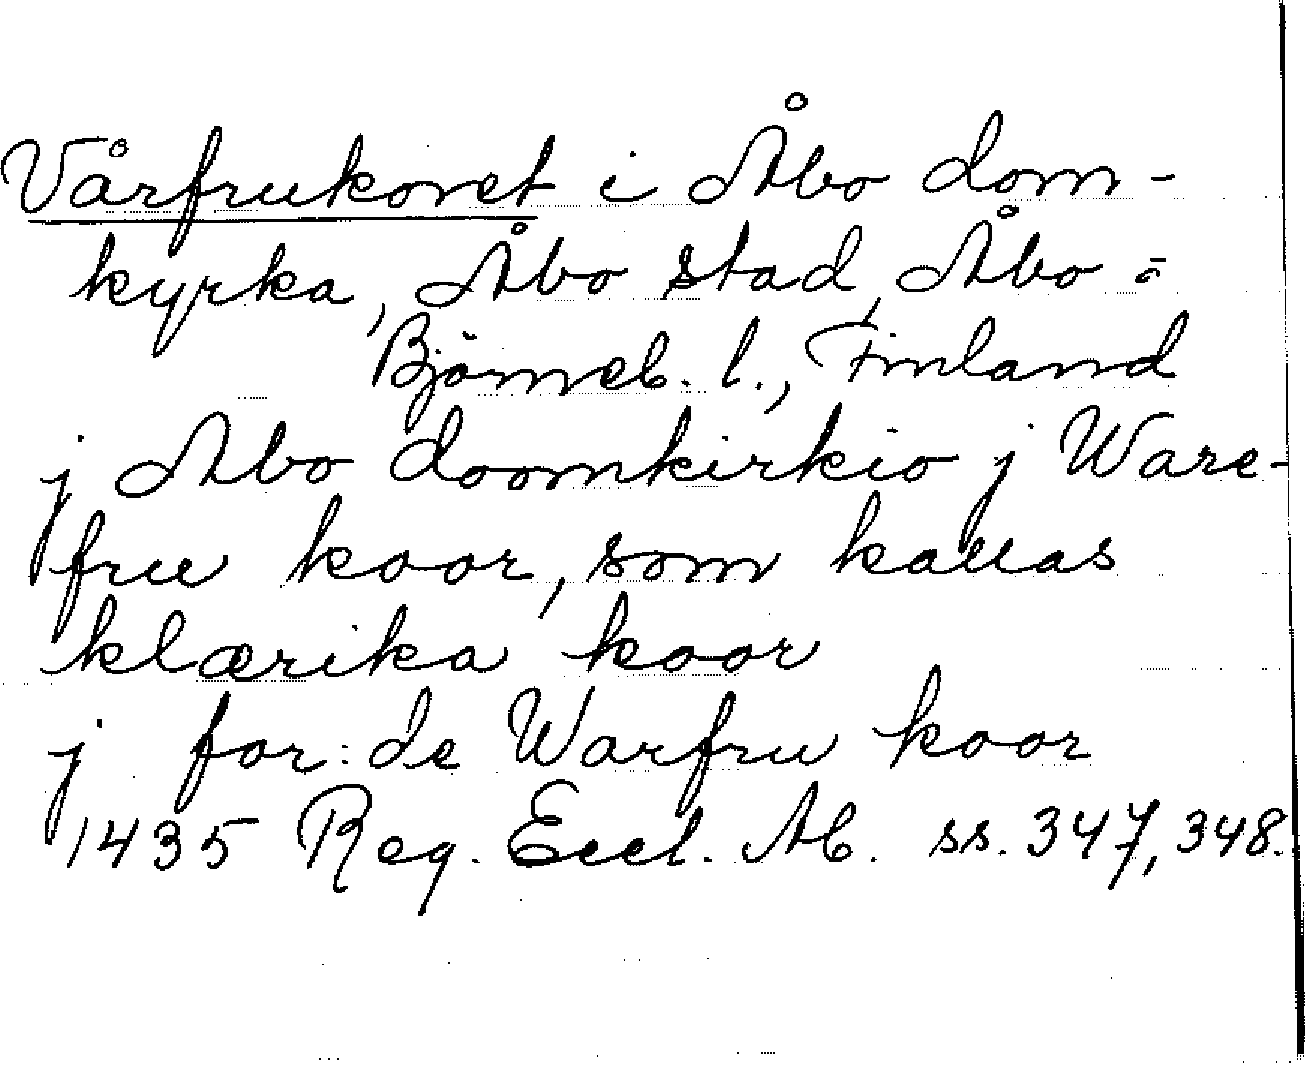 Vårfrukoret i Åbo dom-
kyrka, Åbo stad, Åbo-
Björneb. l., Finland
j Abo doomkirkio j Ware-
fru koor, som kallas
klærika koor
j for: de Warfru koor
1435 Reg. Eccl. Ab. ss. 347, 348.